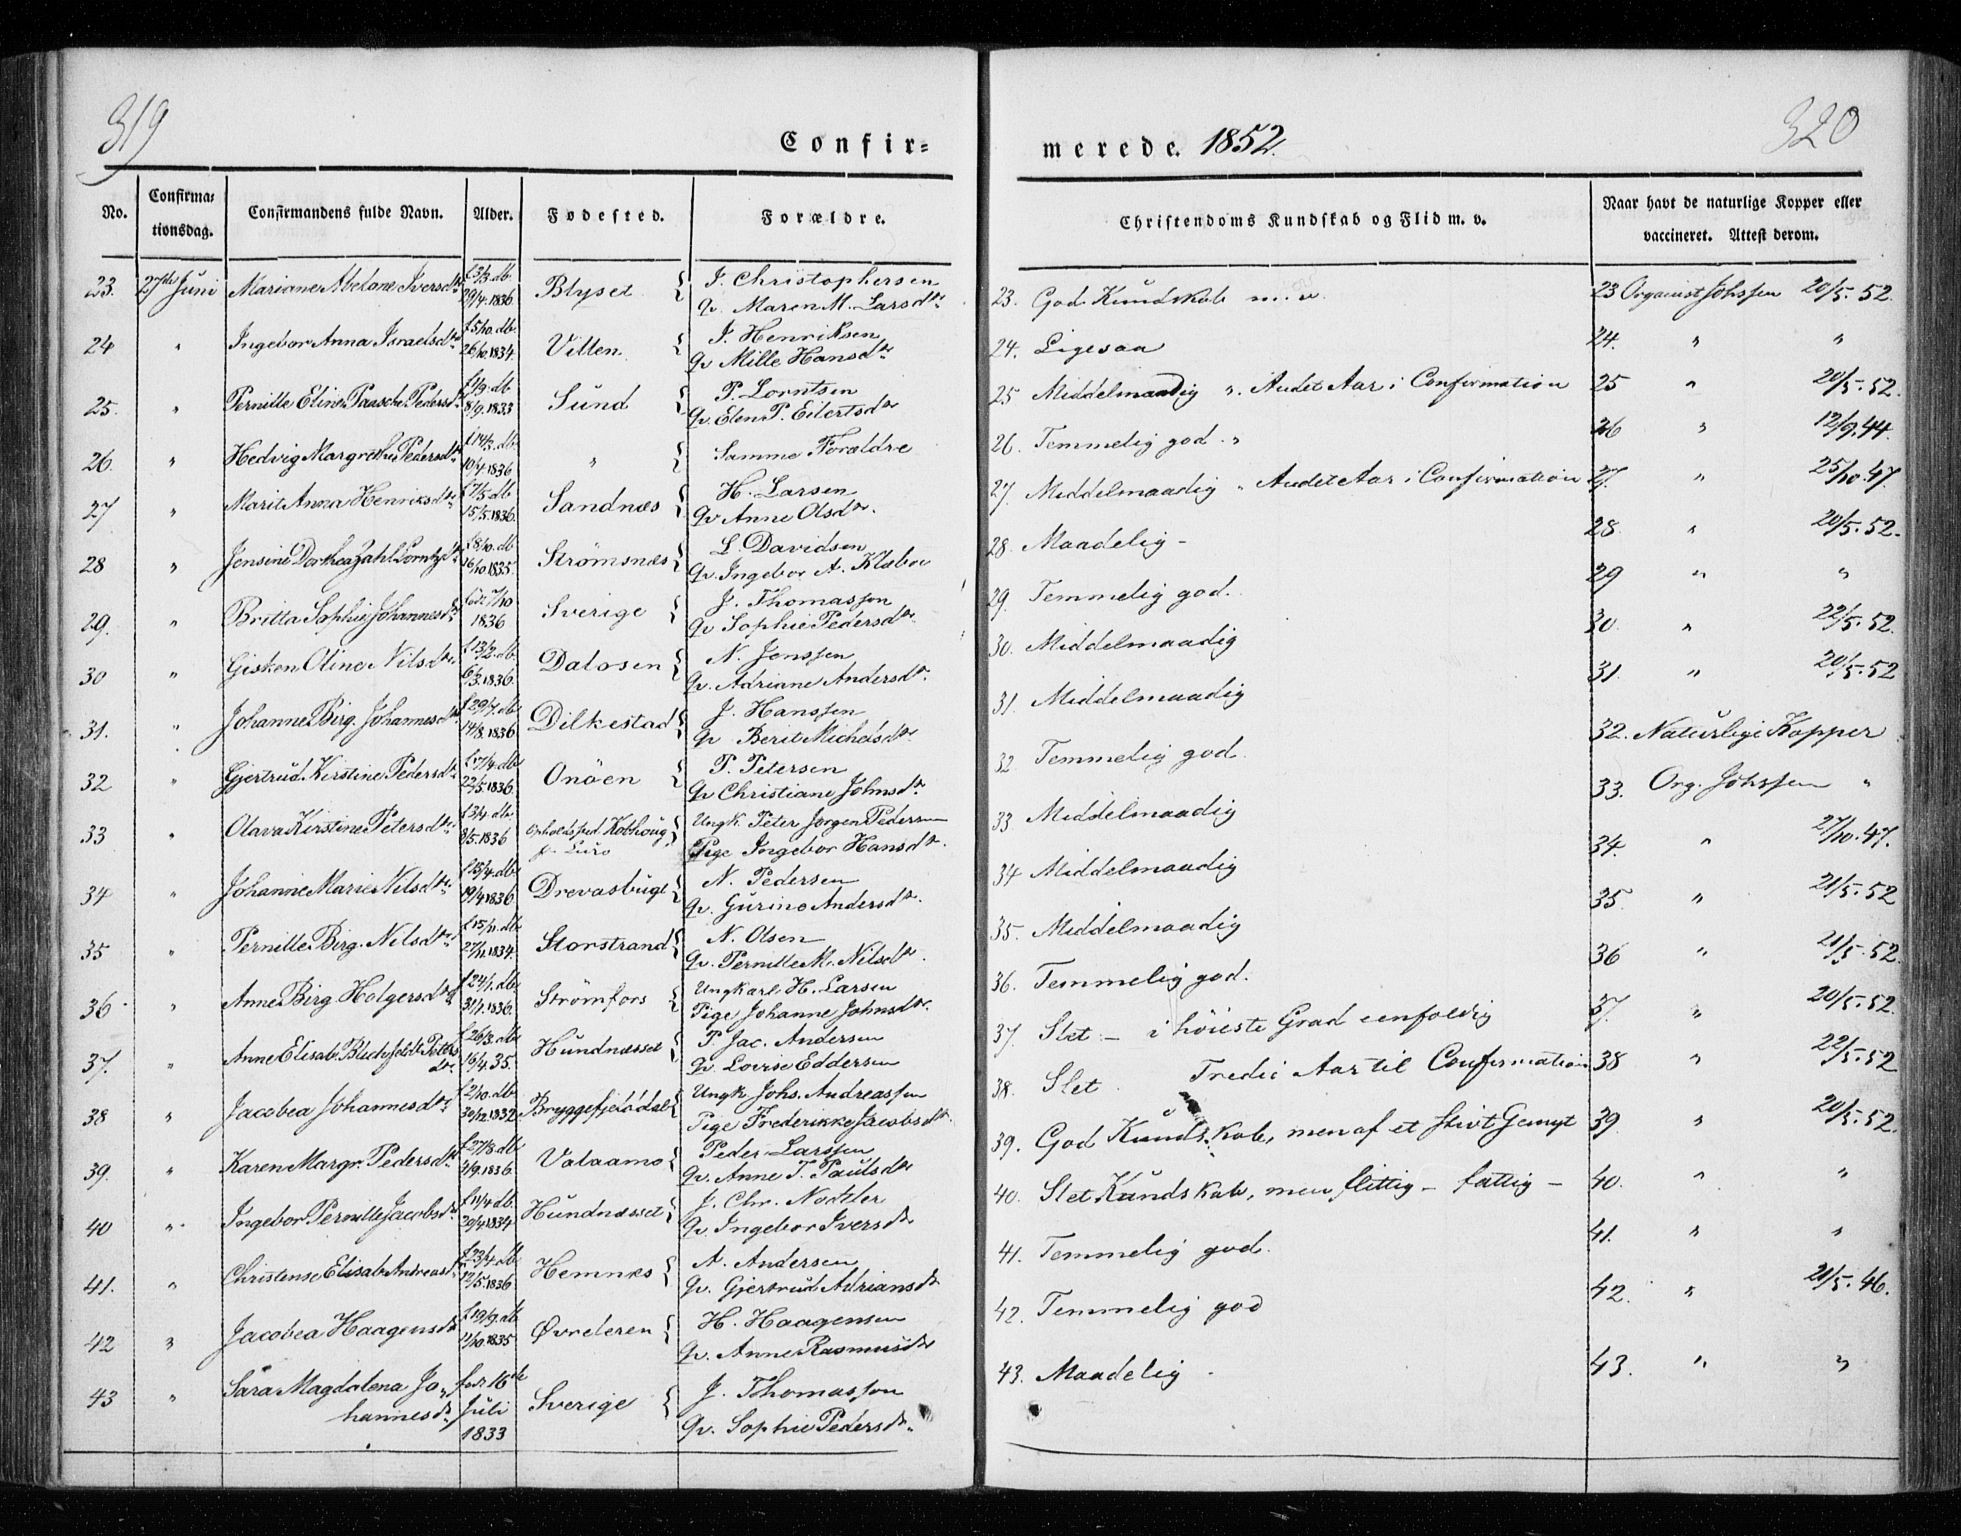 319
320
Confir=
merede. 1852.
No. Confirmationsdag. Confirmandens fulde Navn. Alder. Fødested. Forældre.
Christendoms Kundskab og Flid m. v. Naar havt de naturlige Kopper eller vaccineret. Attest derom.
23. 27de Juni Mariane Abelone Iversdtr f 3/3. db. 29/4. 1836. Blyset { I. Christophersen
Qv. Maren M. Larsdtr
24 " Ingebor Anna Israelsdtr f 5/10. db. 26/10. 1834. Villen { I. Henriksen
Qv Mille Hansdtr
25. " Pernille Eline Paasche Pedersdtr f 1/9. db 8/9. 1833 Sund { P. Lorntsen
Qv. Elen P. Eilertsdtr
26. " Hedvig Margrethe Pedersdtr f 14/3. db. 10/4. 1836 " { Samme Forældre
27 " Marit Anna Henriksdtr f 7/5. db 15/5. 1836. Sandnæs { H. Larsen
Qv Anne Olsdtr.
28 " Jensine Dorthea Zahl Lorntzdtr f 8/10. db 16/10 1835. Strömsnæs { L. Davidsen
Qv. Ingebor A. Klæboe
29. " Britta Sophie Johannesdtr född 7/10 1836 Sverige { J. Thomassen
Qv Sophie Pedersdtr.
30 " Gisken Oline Nilsdtr. f 13/2. db. 6/3. 1836. Dalosen { N. Jenssen
Qv. Adriane Andersdtr.
31. " Johanne Birg. Johannesdtr f 29/7. db. 14/8. 1836 Dilkestad { J. Hanssen
Qv Berit Michelsdtr
32 " Gjertrud Kirstine Pedersdtr f 17/4. db 22/5. 1836. Onöen { P. Petersen
Qv Christiane Johnsdtr.
33 " Olava Kirstine Petersdtr. f 3/4. db. 8/5. 1836 Opholdssted Kobhoug p. Lurö } Ungk. Peter Jørgen Pedersen
Pige Ingebor Hansdtr.
34 " Johanne Marie Nilsdtr. f 13/4. db. 19/4 1836 Drevasbugt { N. Pedersen
Qv. Gurine Andersdtr.
35 " Pernille Birg. Nilsdtr f 15/11. db. 27/11. 1834. Storstrand { N. Olsen
Qv. Pernille M. Nilsdtr.
36. " Anne Birg. Holgersdtr f 24/1. db. 31/1. 1836. Strömfors { Ungkarl H. Larsen
Pige Johanne Johnsdtr.
37. " Anne Elisab. Blichfeldt Petersdtr. f 26/3. db 16/4. 35. Hundnæsset { P. Jac. Andersen
Qv. Lovise Eddersen
38 " Jacobea Johannesdtr f 2/10. db. 30/12. 1832. Bryggefjelddal { Ungk Johs. Andreassen
Pige Frederikke Jacobsdtr.
39. " Karen Margr. Pedersdtr f 27/8. db 4/9. 1836. Valaamo { Peder Larssen
Qv. Anne T. Paulsdtr
40 " Ingebor Pernille Jacobsdtr f 11/4 db. 20/4 1834 Hundnæsset { J. Chr. Nodtler
Qv Ingebor Iversdtr
41. " Christense Elisab. Andreasdtr f 23/4. db. 12/5. 1836. Hemnæs { A. Andersen
Qv. Gjertrud Adriansdtr
42 " Jacobea Haagensdtr f 19/9. db 11/10. 1835 Øvrderen { H. Haagensen
Qv. Anne Rasmusdtr
43 " Sara Magdalena Johannesdtr. född 16de Juli 1833 Sverige { J. Thomassen
Qv. Sophie Pedersdtr.
23. God Kundskab m. v. 23 Organist Johssen 20/5. 52.
24. Ligesaa 24. " "
25 Middelmaadig ". Andet Aar i Confirmation 25 " 20/5. 52.
26. Temmelig god. " 26 " 12/9. 44.
27. Middelmaadig " Andet Aar i Confirmation 27. " 25/10. 47.
28. Maadelig - 28. " 20/5. 52.
29. Temmelig god. 29 " "
30. Middelmaadig 30. " 22/5. 52.
31. Middelmaadig 31. " 20/5. 52
32 Temmelig god. 32. Naturlige Kopper
33 Middelmaadig 33. Org. Johssen "
34 Middelmaadig 34. " 27/10. 47.
35. Middelmaadig 35. " 21/5. 52
36. Temmelig god. 36 " 21/5. 52.
37. Slet - i höieste Grad eenfoldig 37. " 20/5. 52.
38. Slet. Tredie Aar til Confirmation 38 " 22/5. 52
39. God Kundskab, men af et stivt Gemyt 39. " 20/5. 52.
40. Slet Kundskab, men flittig - fattig - 40. " "
41. Temmelig god. 41. " "
42. Temmelig god 42. " 21/5. 46.
43. Maadelig 43. " "